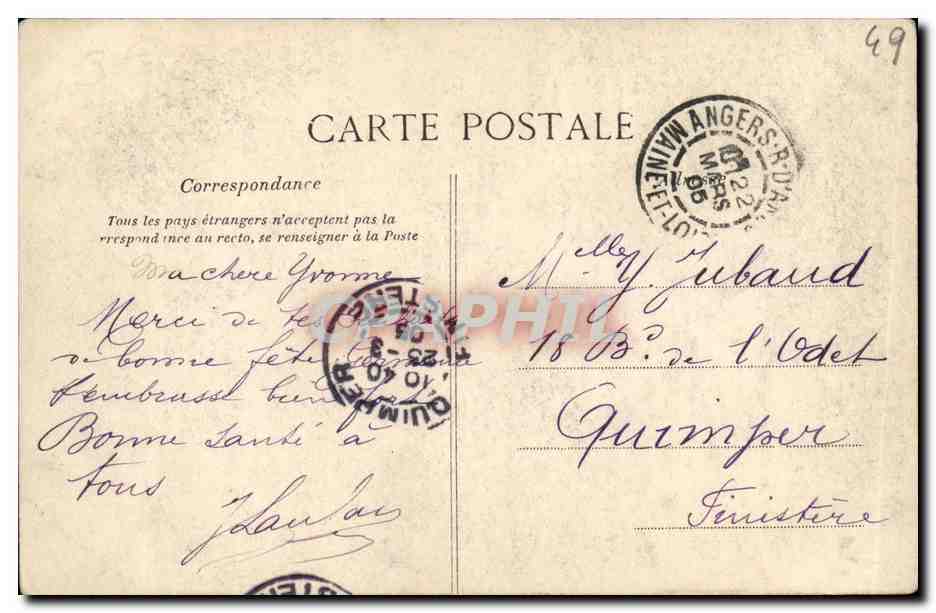 49
CARTE POSTALE
Correspondance
Tous les pays étrangers n'acceptent pas la
correspondance au recto, se renseigner à la Poste
Ma chere Yvonne
Merci de tes
de bonne fête
t'embrasse bien fort
Bonne santé à
tous
ANGERS-R-D'A
22
MARS
05
MAINE-ET-LOI
Adresse
Melle Y. Jubaud
18 Bd. de l'Odet
Quimper
Finistère
QUIMPER
10 40
23 - 3
05
FINISTERE
CPAPHIL